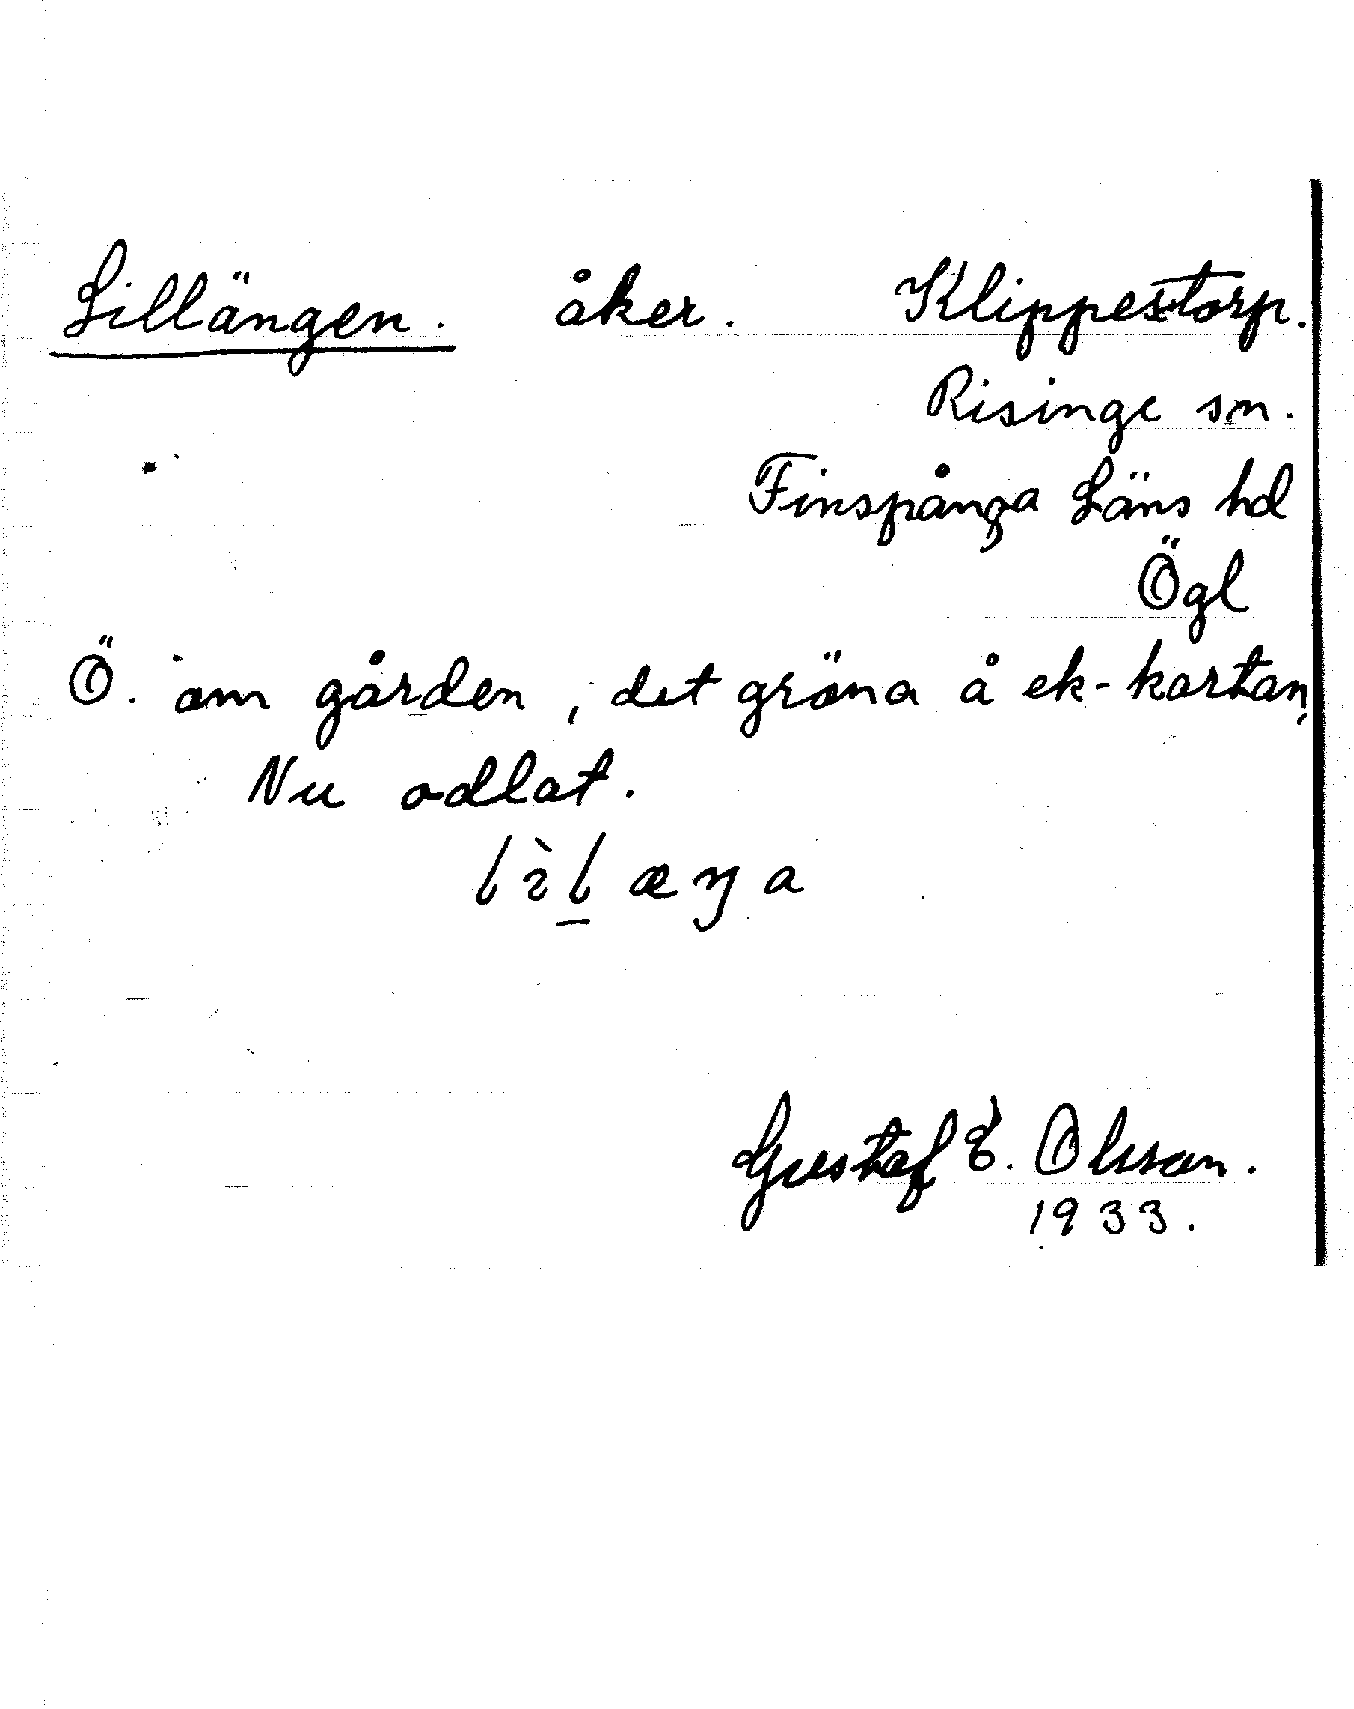 Lillängen. åker. Klippestorp.
Risinge sn.
Finspånga Läns hd
Ögl
Ö. om gården, det gröna å ek-kartan,
Nu odlat.
lìl̲æŋa
Gustaf E. Olsson.
1933.